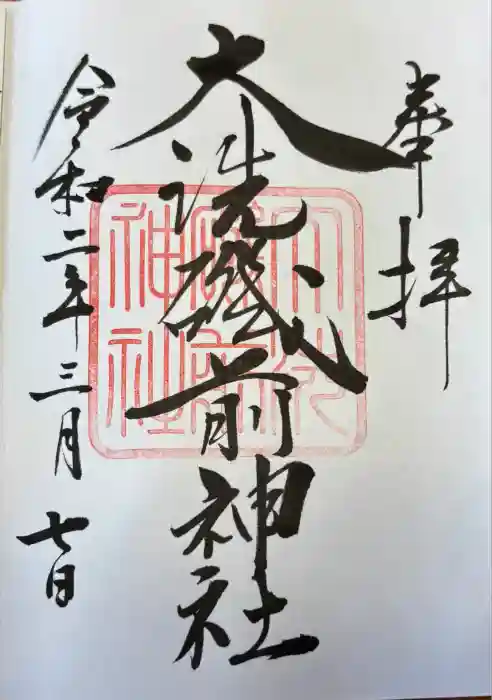 奉拝
大洗磯前神社
令和二年三月七日
大洗磯前神社